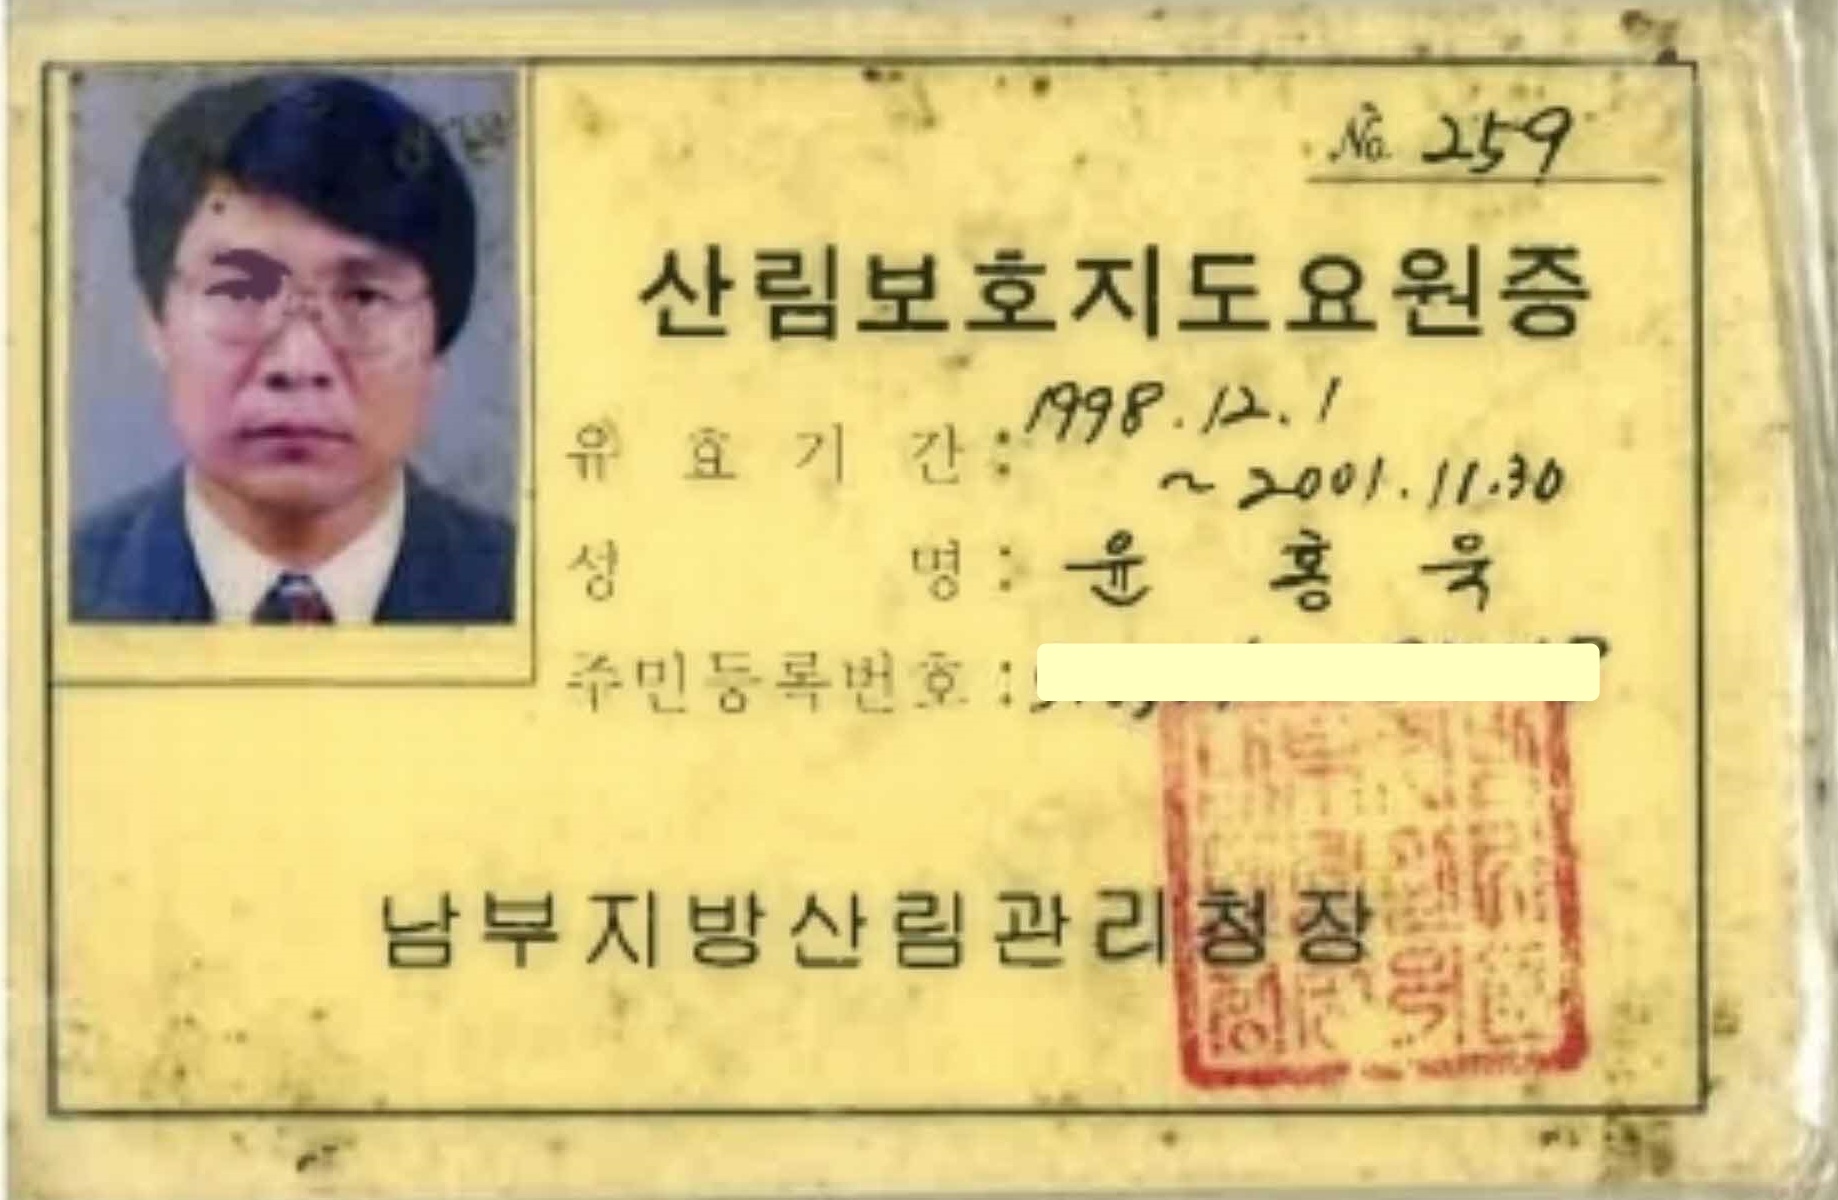 No. 259
산림보호지도요원증
유효기간 : 1998.12.1
~ 2001.11.30
성명 : 윤홍욱
주민등록번호 :
남부지방산림관리청장